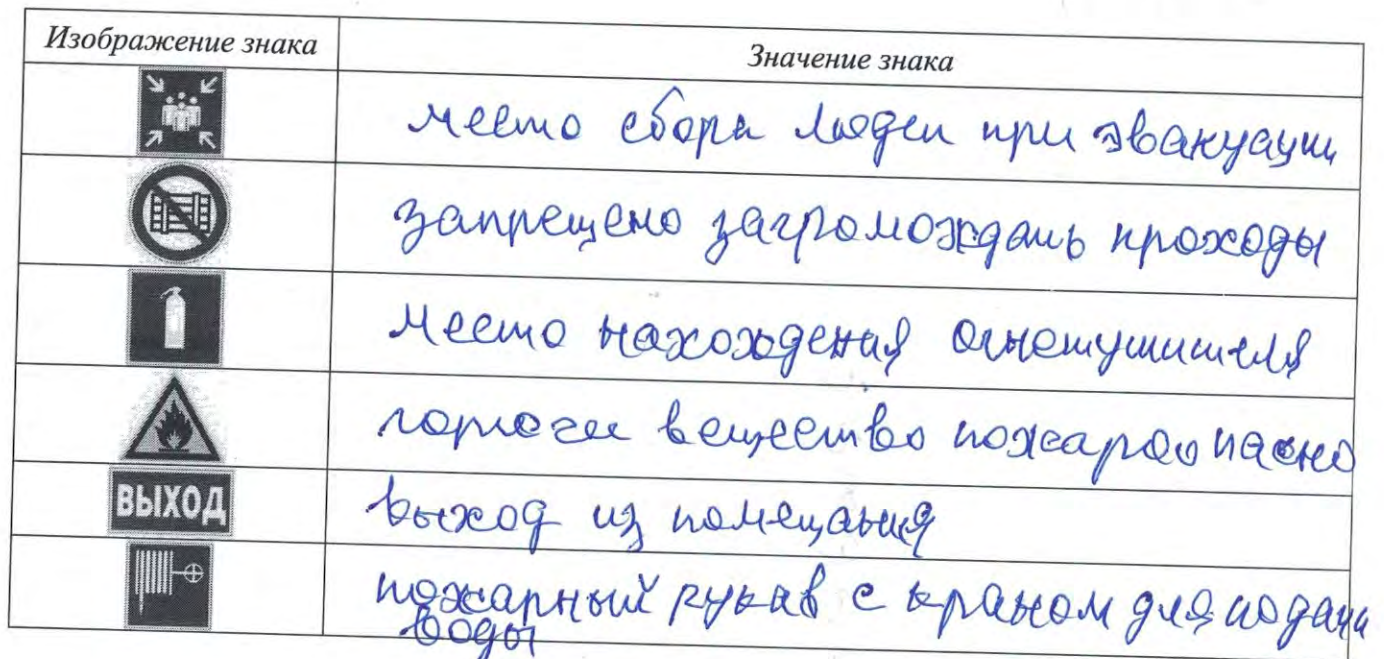 Изображение знака Значение знака
место сбора людей при эвакуации
запрещено загромождать проходы
место нахождения огнетушителя
горючее вещество пожароопасно
ВЫХОД выход из помещания
пожарный рукав с краном для подачи
воды